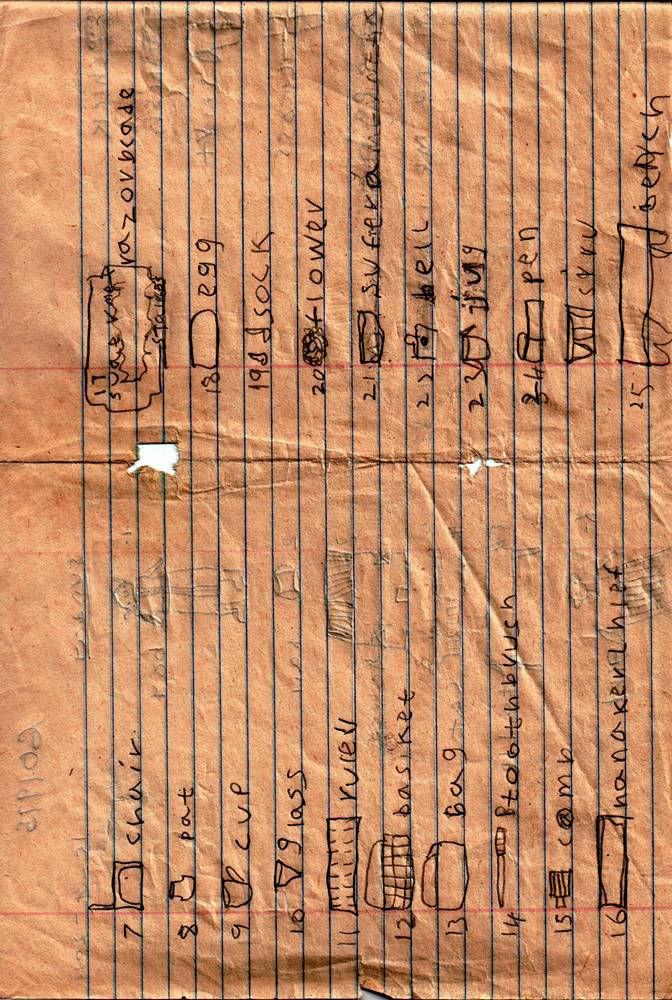 7 chair.
8 pat
9 cup
10 glass
11 ruler
12 basiket
13 Bag
14 toothbruch
15 comb
16
17 razorblade
18 egg
19 sock
20 flower
21
22 bell
23 jug
24 pen
25 bench